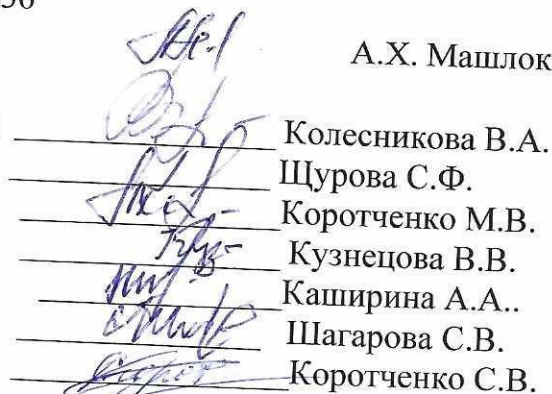 А.Х. Машлок
Колесникова В.А.
Щурова С.Ф.
Коротченко М.В.
Кузнецова В.В.
Каширина А.А..
Шагарова С.В.
Коротченко С.В.